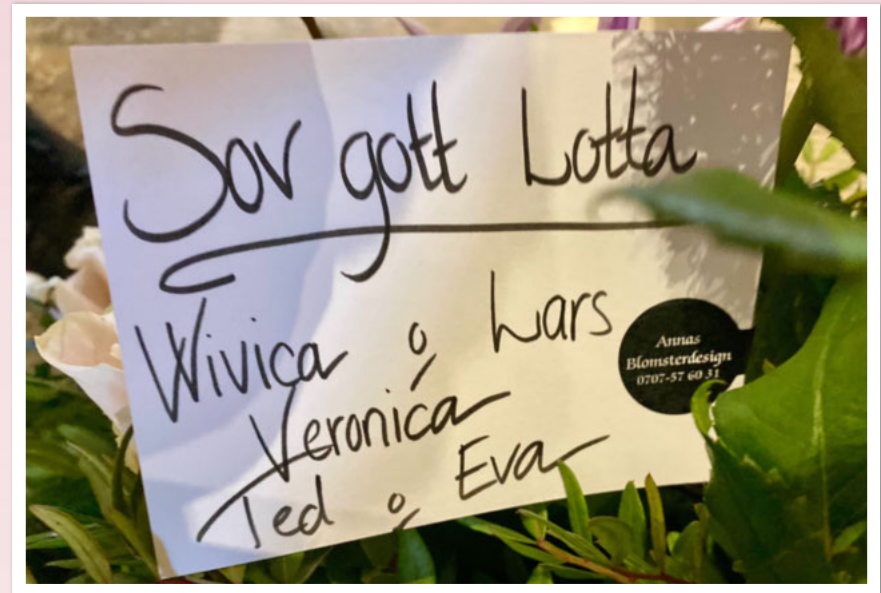 Sov gott Lotta
Wivica o Lars
Veronica
Ted o Eva
Annas
Blomsterdesign
0707-57 60 31